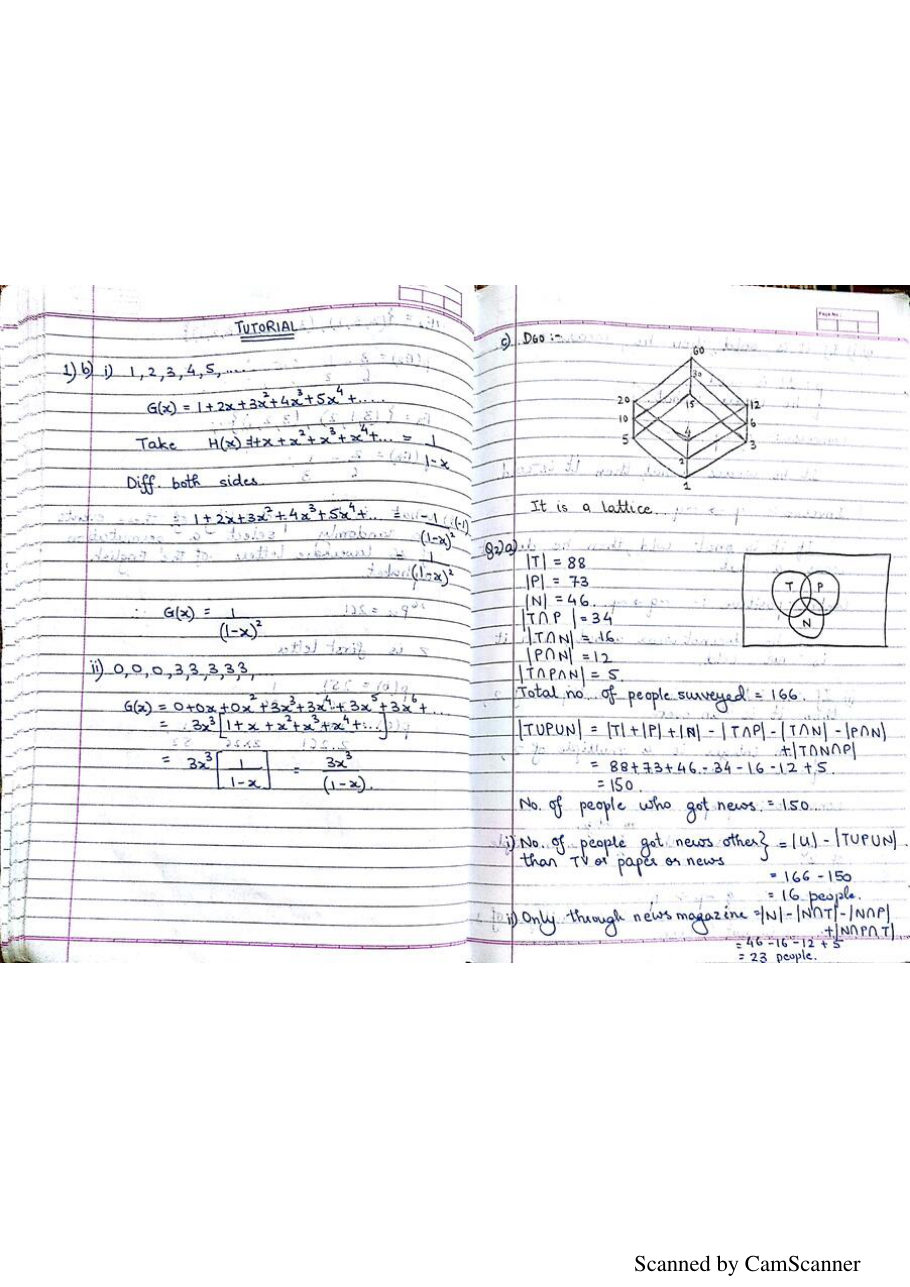 TUTORIAL
1) b) i) 1, 2, 3, 4, 5, ....
G(x) = 1 + 2x + 3x² + 4x³ + 5x⁴ + ....
Take H(x) = 1 + x + x² + x³ + x⁴ + ... = 1/(1-x)
Diff. both sides
1 + 2x + 3x² + 4x³ + 5x⁴ + ... = -1/(1-x)² (-1)
1/(1-x)²
G(x) = 1/(1-x)²
ii) 0, 0, 0, 3, 3, 3, 3, 3, ...
G(x) = 0 + 0x + 0x² + 3x³ + 3x⁴ + 3x⁵ + 3x⁶ + ...
= 3x³ [1 + x + x² + x³ + x⁴ + ...]
= 3x³ [1/(1-x)] = 3x³/(1-x).
Page No.:
c) D60 :-
60
30
20 15 12
10 6
5 4 3
2
1
It is a lattice.
Q2) a)
|T| = 88
|P| = 73
|N| = 46.
|T∩P| = 34
|T∩N| = 16
|P∩N| = 12
|T∩P∩N| = 5.
T P
N
Total no. of people surveyed = 166.
|TUPUN| = |T| + |P| + |N| - |T∩P| - |T∩N| - |P∩N|
+ |T∩N∩P|
= 88 + 73 + 46 - 34 - 16 - 12 + 5.
= 150.
No. of people who got news = 150.
i) No. of people got news other } = |U| - |TUPUN|.
than TV or paper or news
= 166 - 150
= 16 people.
ii) Only through news magazine = |N| - |N∩T| - |N∩P|
+ |N∩P∩T|
= 46 - 16 - 12 + 5
= 23 people.
Scanned by CamScanner